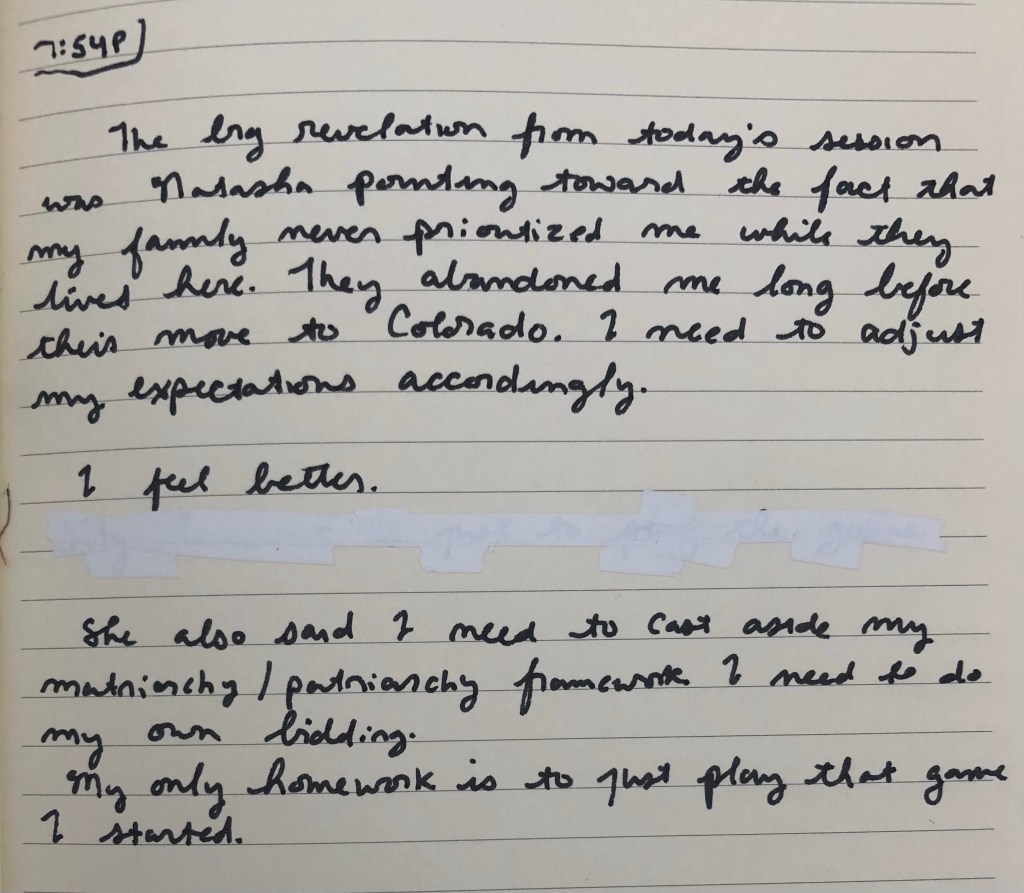 7:54P
The big revelation from today's session
was Natasha pointing toward the fact that
my family never prioritized me while they
lived here. They abandoned me long before
their move to Colorado. I need to adjust
my expectations accordingly.
I feel better.
She also said I need to cast aside my
matriarchy/patriarchy framework. I need to do
my own bidding.
My only homework is to just play that game
I started.